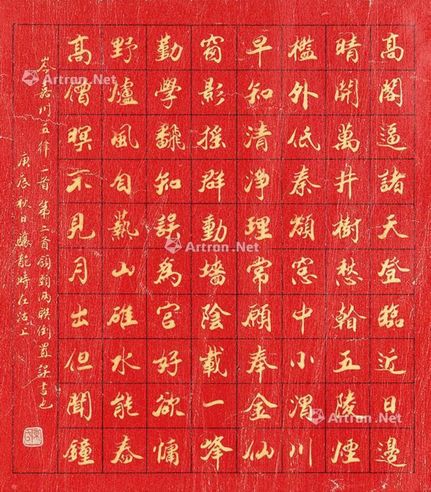 高閣逼諸天登臨近日邊
晴開萬井樹愁看五陵煙
檻外低秦嶺窓中小渭川
早知清淨理常願奉金仙
窗影搖群動墻陰載一峰
勤學翻知誤為官好欲慵
野爐風自爇山碓水能舂
高僧暝不見月出但聞鐘
岑嘉州五律二首第二首頷頸兩聯倒置誤書也
庚辰秋日 時在沽上
Artron.Net
Artron.Net
Artron.Net
Artron.Net
Artron.Net